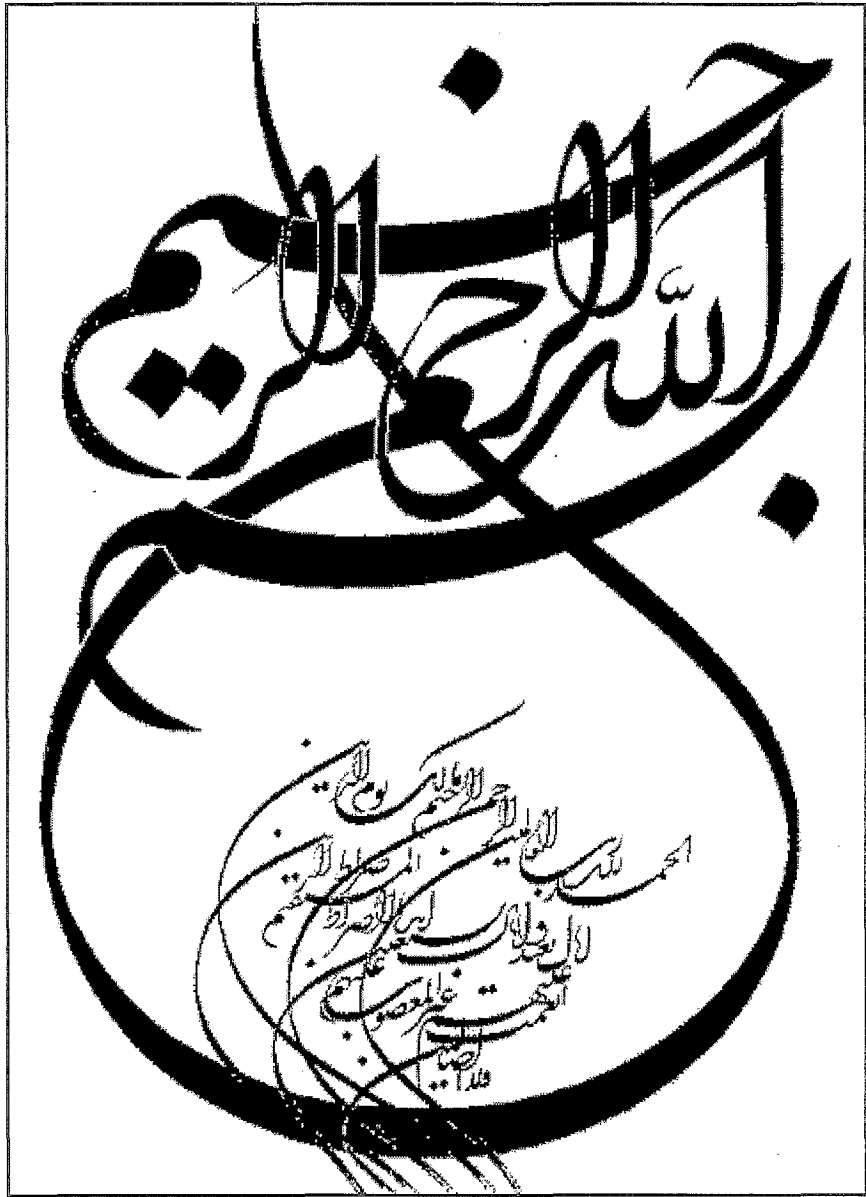 بسم الله الرحمن الرحيم
الحمد لله رب العالمين
الرحمن الرحيم مالك يوم الدين
إياك نعبد وإياك نستعين
اهدنا الصراط المستقيم صراط الذين
أنعمت عليهم غير المغضوب عليهم
ولا الضالين